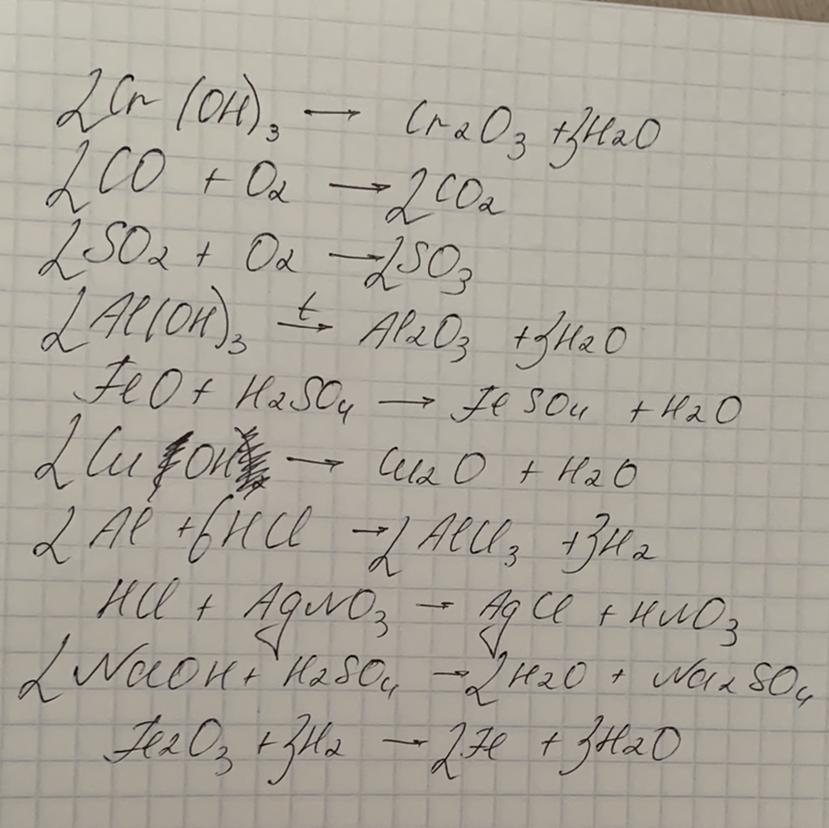 2Cr(OH)₃ → Cr₂O₃ + 3H₂O
2CO + O₂ → 2CO₂
2SO₂ + O₂ → 2SO₃
2Al(OH)₃ t→ Al₂O₃ + 3H₂O
FeO + H₂SO₄ → FeSO₄ + H₂O
2CuOH → Cu₂O + H₂O
2Al + 6HCl → 2AlCl₃ + 3H₂
HCl + AgNO₃ → AgCl + HNO₃
2NaOH + H₂SO₄ → 2H₂O + Na₂SO₄
Fe₂O₃ + 3H₂ → 2Fe + 3H₂O